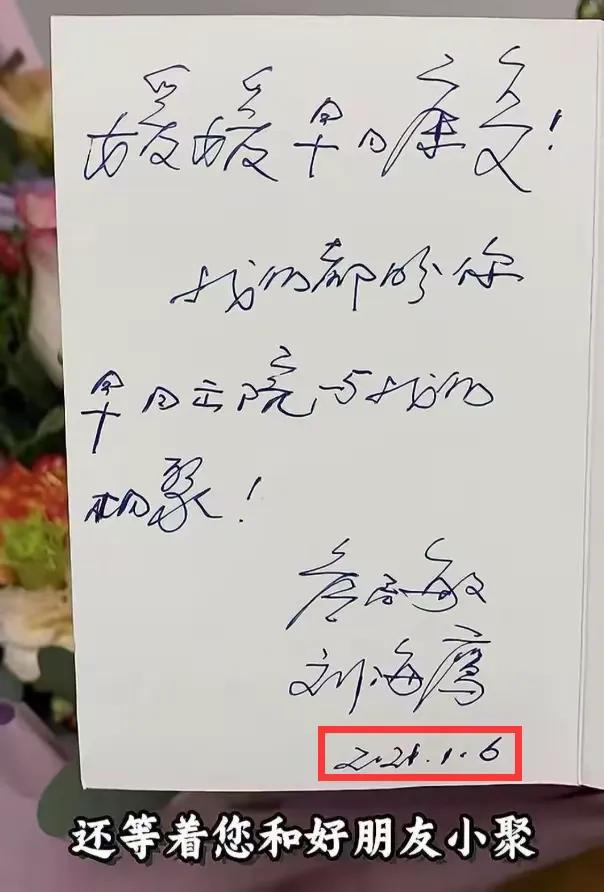 媛媛早日康复!
我们都盼你
早日出院与我们
相聚!
詹启敏
刘海鹰
2021.1.6
还等着您和好朋友小聚